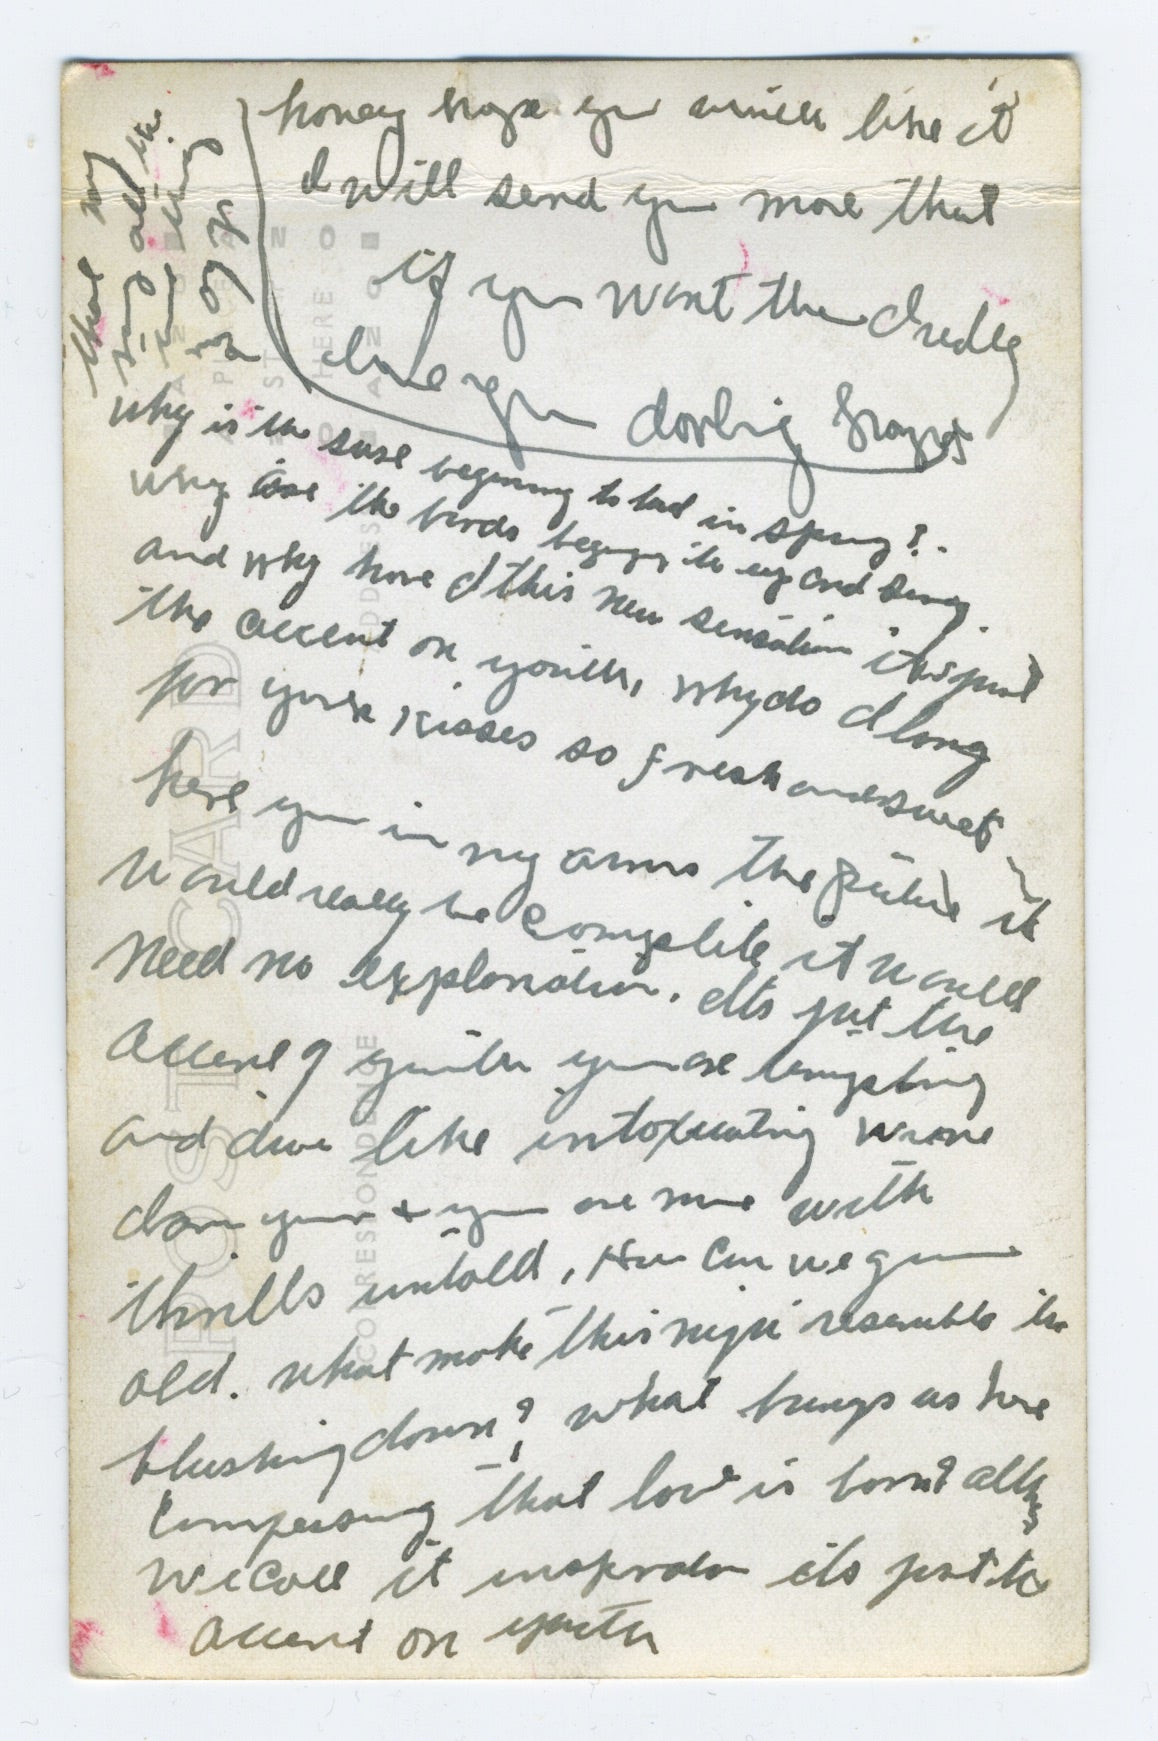 honey hope you will like it
I will send you more that
if you want them I really
love you darling
that my
all the
why is the rose beginning to bud in spring?.
why are the birds beginning to up and sing.
and why have I this new sensation its just
the accent on youth, why do I long
for your kisses so fresh and sweet
here you in my arms the future it
would really be complete it would
need no explanation. Its just the
accent of youth you are tempting
and divine like intoxicating wine
I am your + you are mine with
thrills untold, How can we grow
old. what make this night resemble the
blushing dawn? what brings us here
composing that love is born? altho
we call it inspiration its just the
accent on youth
POST CARD
CORRESPONDENCE
ADDRESS
PLACE
STAMP
HERE